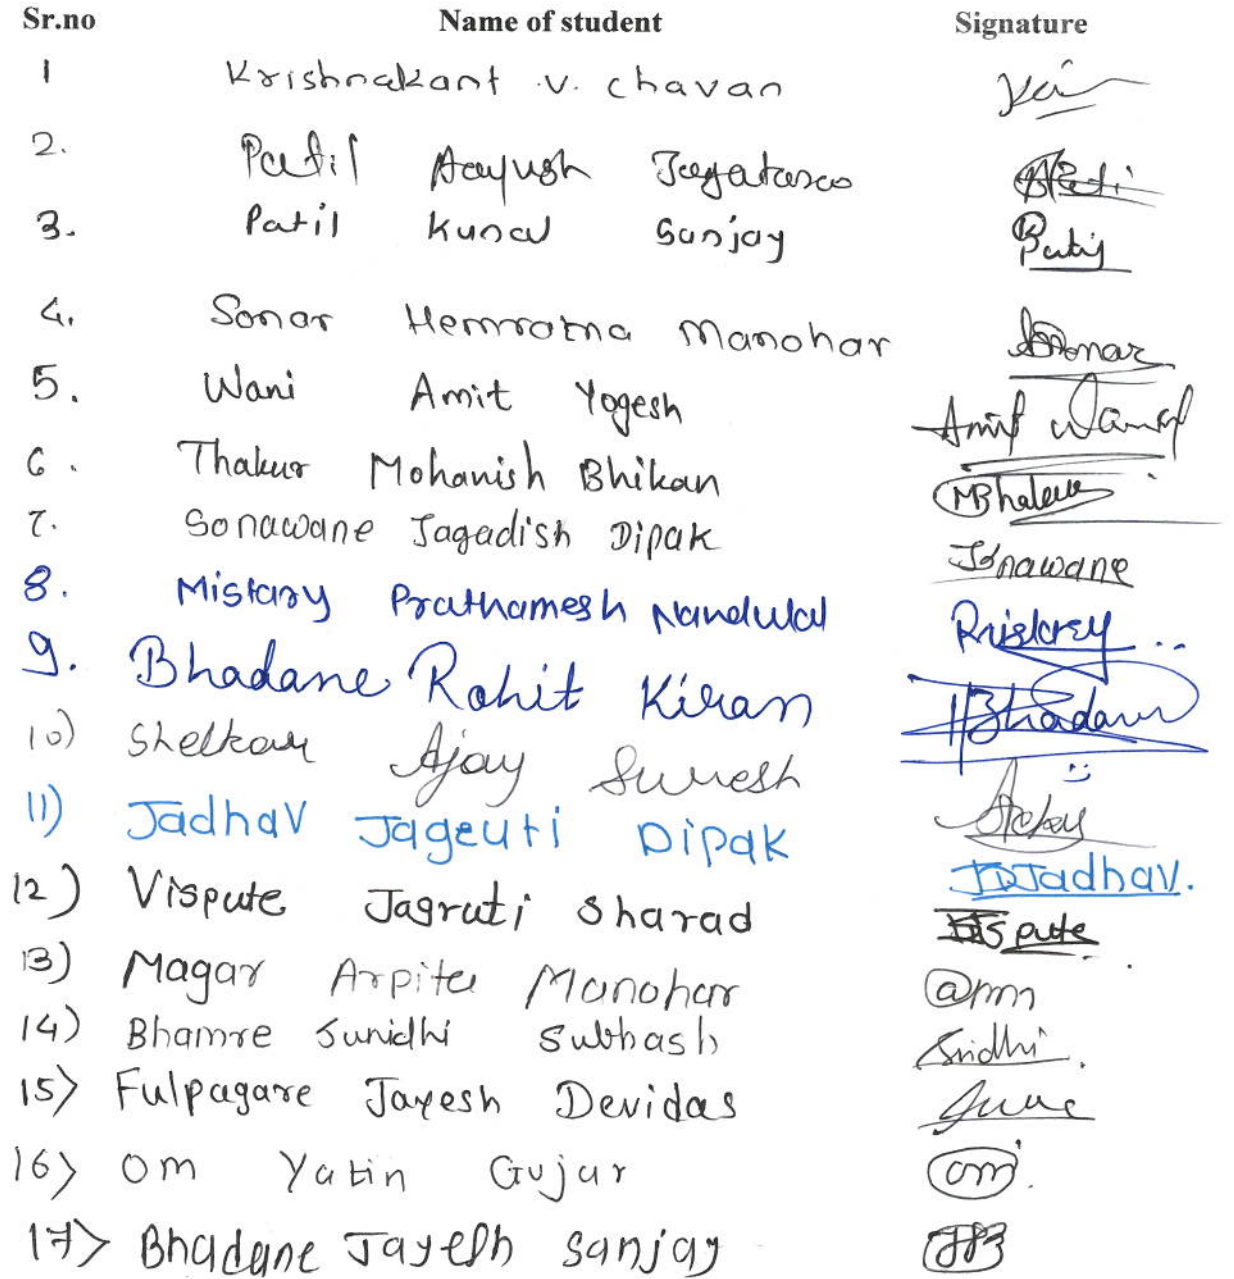 Sr.no Name of student Signature
1 Krishnakant v. chavan
2. Patil Aayush Jagatarao
3. Patil Kunal Sanjay Patil
4. Sonar Hemratna Manohar Sonar
5. Wani Amit Yogesh Amit Wani
6. Thakur Mohanish Bhikan
7. Sonawane Jagadish Dipak JSonawane
8. Mistary Prathamesh Nandulal
9. Bhadane Rohit Kiran Bhadane
10) Shelkar Ajay Suresh
11) Jadhav Jageuti Dipak JDJadhav.
12) Vispute Jagruti Sharad
13) Magar Arpita Manohar
14) Bhamre Sunidhi Subhash
15) Fulpagare Jayesh Devidas
16) Om Yatin Gujar om
17) Bhadane Jayesh Sanjay JSB